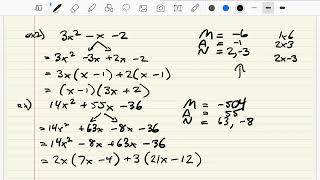 ex2) 3x² - x - 2
= 3x² - 3x + 2x - 2
= 3x(x - 1) + 2(x - 1)
= (x - 1)(3x + 2)
M = -6
A = -1
N = 2, -3
1x6
2x3
2x-3
ex) 14x² + 55x - 36
= 14x² + 63x - 8x - 36
= 14x² - 8x + 63x - 36
= 2x(7x - 4) + 3(21x - 12)
M = -504
A = 55
N = 63, -8